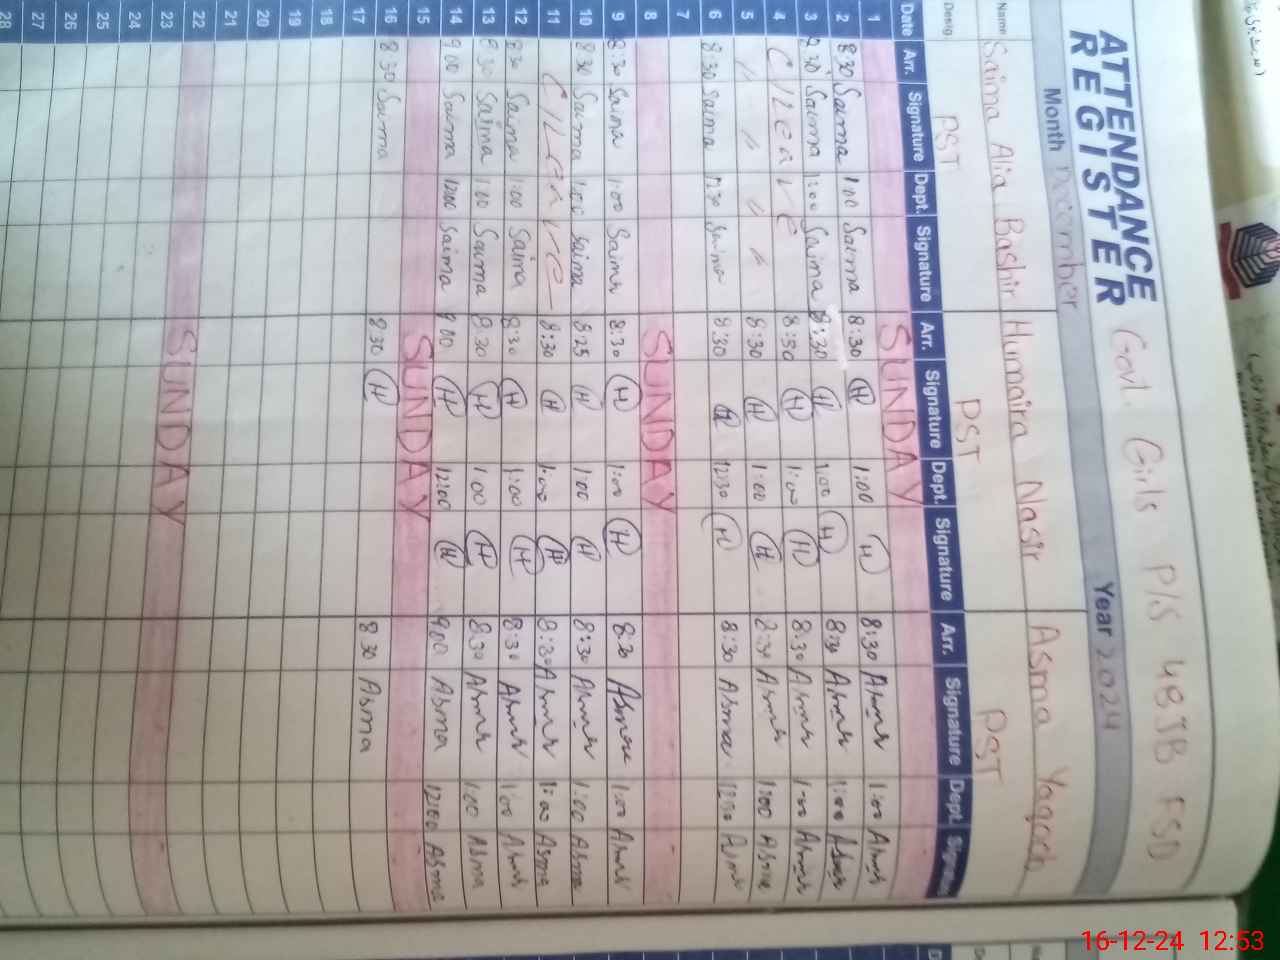 ATTENDANCE
REGISTER
Govt. Girls P/S 48 JB FSD
Month December Year 2024
Name Saima Alia Bashir Humaira Nasir Asma Yaqoob
Desig. PST PST PST
Date Arr. Signature Dept. Signature Arr. Signature Dept. Signature Arr. Signature Dept. Signature
1 SUNDAY
2 8:30 Saima 1:00 Saima 8:30 H 1:00 H 8:30 Asma 1:00 Asma
3 8:30 Saima 1:00 Saima 8:30 H 1:00 H 8:30 Asma 1:00 Asma
4 C/Leave 8:30 H 1:00 H 8:30 Asma 1:00 Asma
5 " " " " 8:30 H 1:00 H 8:30 Asma 1:00 Asma
6 8:30 Saima 12:30 Saima 8:30 H 12:30 H 8:30 Asma 12:30 Asma
7
8 SUNDAY
9 8:30 Saima 1:00 Saima 8:30 H 1:00 H 8:30 Asma 1:00 Asma
10 8:30 Saima 1:00 Saima 8:25 H 1:00 H 8:30 Asma 1:00 Asma
11 C/Leave 8:30 H 1:00 H 8:30 Asma 1:00 Asma
12 8:30 Saima 1:00 Saima 8:30 H 1:00 H 8:30 Asma 1:00 Asma
13 8:30 Saima 1:00 Saima 8:30 H 1:00 H 8:30 Asma 1:00 Asma
14 9:00 Saima 12:00 Saima 9:00 H 12:00 H 9:00 Asma 12:00 Asma
15 SUNDAY
16 8:30 Saima 8:30 H 8:30 Asma
17
18
19
20
21
22 SUNDAY
23
24
25
26
27
28
16-12-24 12:53